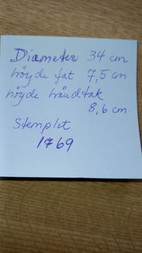 Diameter 34 cm
høyde fat 7,5 cm
høyde håndtak
8,6 cm
Stemplet
1769